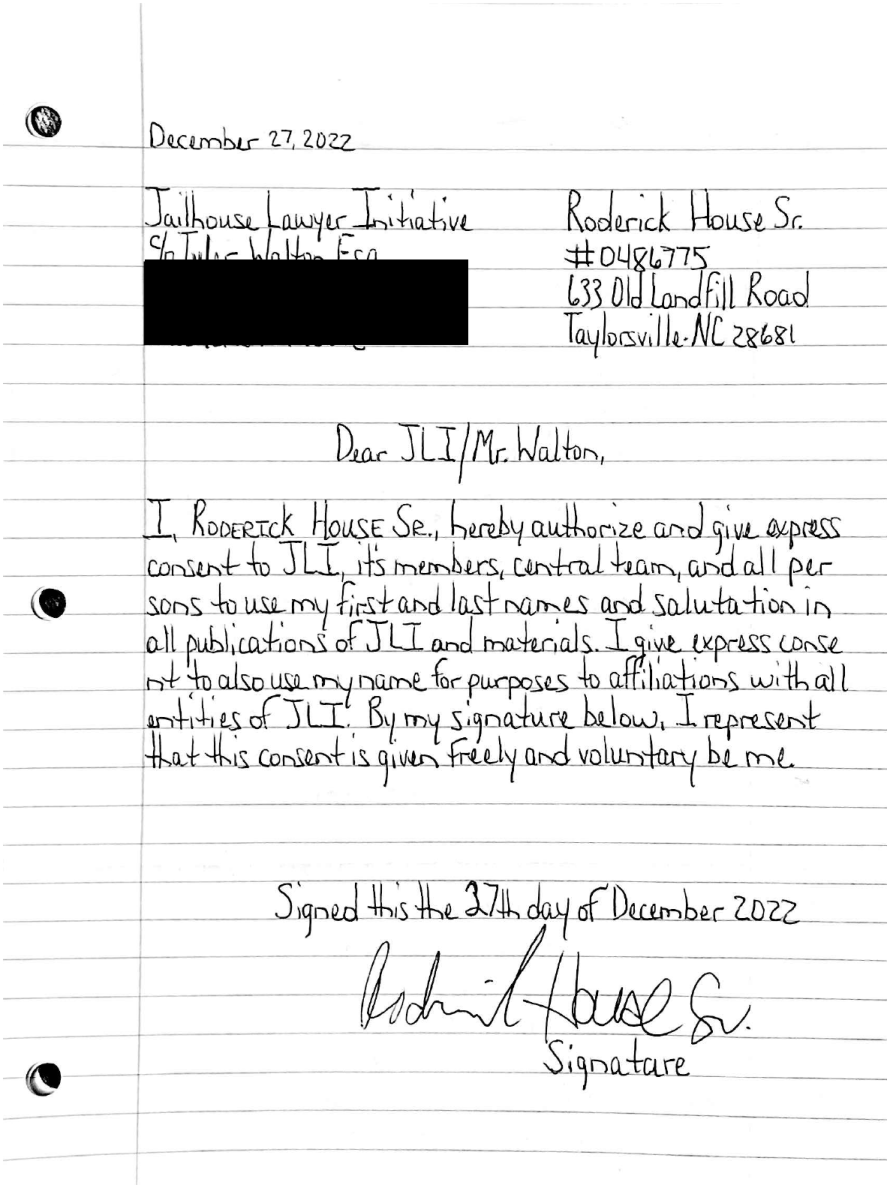 December 27, 2022
Jailhouse Lawyer Initiative
c/o Tyler Walton Esq
Roderick House Sr.
#0486775
633 Old Landfill Road
Taylorsville-NC 28681
Dear JLI/Mr. Walton,
I, RODERICK HOUSE SR., hereby authorize and give express
consent to JLI, it's members, central team, and all per
sons to use my first and last names and salutation in
all publications of JLI and materials. I give express conse
nt to also use my name for purposes to affiliations with all
entities of JLI. By my signature below, I represent
that this consent is given freely and voluntary be me.
Signed this the 27th day of December 2022
Roderick House Sr.
Signature